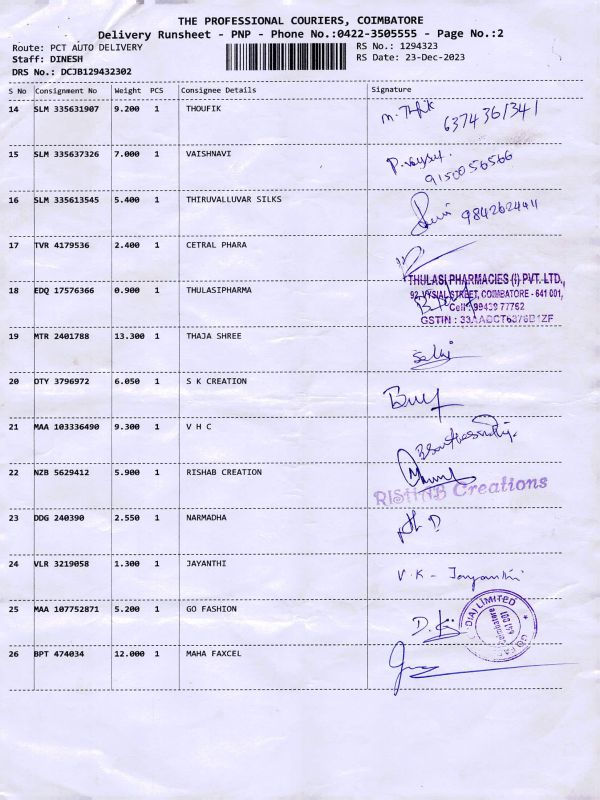 THE PROFESSIONAL COURIERS, COIMBATORE
Delivery Runsheet - PNP - Phone No.:0422-3505555 - Page No.:2
Route: PCT AUTO DELIVERY
RS No.: 1294323
Staff: DINESH
RS Date: 23-Dec-2023
DRS No.: DCJB129432302
S No Consignment No Weight PCS Consignee Details Signature
14 SLM 335631907 9.200 1 THOUFIK M. Thfik 6374361341
15 SLM 335637326 7.000 1 VAISHNAVI 9150056566
16 SLM 335613545 5.400 1 THIRUVALLUVAR SILKS
17 TVR 4179536 2.400 1 CETRAL PHARA
18 EDQ 17576366 0.900 1 THULASIPHARMA
THULASI PHARMACIES (I) PVT. LTD.,
92, VYSIAL STREET, COIMBATORE - 641 001,
Cell : 99439 77762
GSTIN : 33AADCT6376B1ZF
19 MTR 2401788 13.300 1 THAJA SHREE Selvi
20 OTY 3796972 6.050 1 S K CREATION
21 MAA 103336490 9.300 1 V H C
22 NZB 5629412 5.900 1 RISHAB CREATION
RISHAB Creations
23 DDG 240390 2.550 1 NARMADHA
24 VLR 3219058 1.300 1 JAYANTHI V.K - Jayanthi
25 MAA 107752871 5.200 1 GO FASHION
26 BPT 474034 12.000 1 MAHA FAXCEL